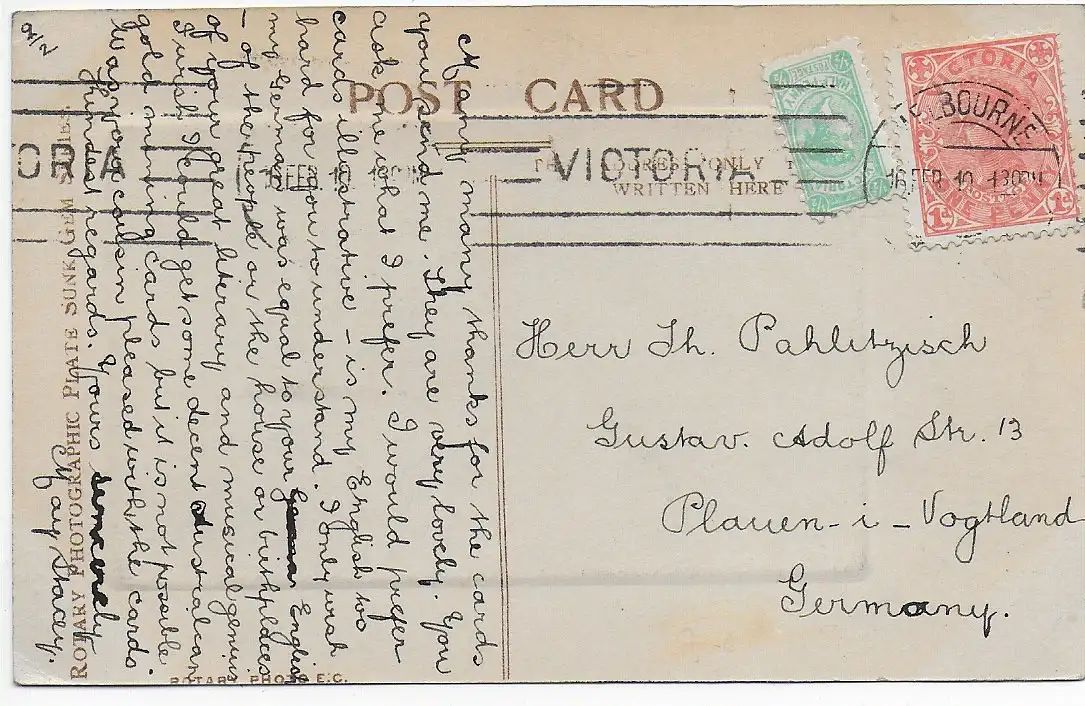 POST CARD
THE ADDRESS ONLY TO BE
WRITTEN HERE
VICTORIA
VICTORIA
ONE PENNY
1d 1d
½ ½
MELBOURNE
16 FEB 10 1 30PM
VICTORIA
ORIA
16 FEB 10 1 30
9/2
A many many thanks for the cards
you send me. They are very lovely. You
ask me what I prefer. I would prefer
cards illustrative – is my English too
hard for you to understand. I only wish
my German was equal to your English
– of the people or the house or birthplaces
of your great literary and musical genius
I wish I could get some decent Australian
gold mining cards but it is not possible
Was your cousin pleased with the cards.
Kindest regards. Yours sincerely
May Stacey.
Herr Th. Pahlitzsch
Gustav. Adolf Str. 13
Plauen - i - Vogtland
Germany.
ROTARY PHOTOGRAPHIC PLATE SUNK GEM SERIES.
ROTARY PHOTO E.C.